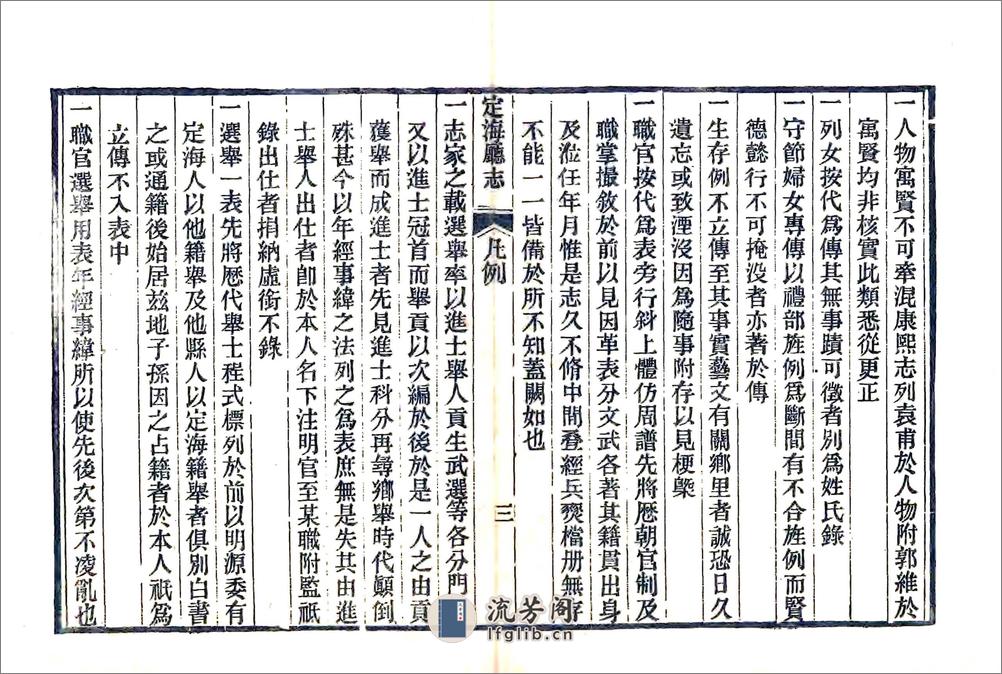 一人物寓賢不可牽混康熙志列袁甫於人物附郭維於
寓賢均非核實此類悉從更正
一列女按代爲傳其無事蹟可徵者別爲姓氏錄
一守節婦女專傳以禮部旌例爲斷間有不合旌例而賢
德懿行不可掩没者亦著於傳
一生存例不立傳至其事實藝文有關鄉里者誠恐日久
遺忘或致湮没因爲隨事附存以見梗槩
一職官按代爲表旁行斜上體仿周譜先將歷朝官制及
職掌撮敘於前以見因革表分文武各著其籍貫出身
及涖任年月惟是志久不脩中間疊經兵燹檔册無存
不能一一皆備於所不知蓋闕如也
定海廳志
凡例
三
一志家之載選舉率以進士舉人貢生武選等各分門
又以進士冠首而舉貢以次編於後於是一人之由貢
獲舉而成進士者先見進士科分再尋鄉舉時代顛倒
殊甚今以年經事緯之法列之爲表庶無是失其由進
士舉人出仕者卽於本人名下注明官至某職附監祇
錄出仕者捐納虛銜不錄
一選舉一表先將歷代舉士程式標列於前以明源委有
定海人以他籍舉及他縣人以定海籍舉者俱別白書
之或通籍後始居兹地子孫因之占籍者於本人祇爲
立傳不入表中
一職官選舉用表年經事緯所以使先後次第不凌亂也
流芳阁
lfglib.cn